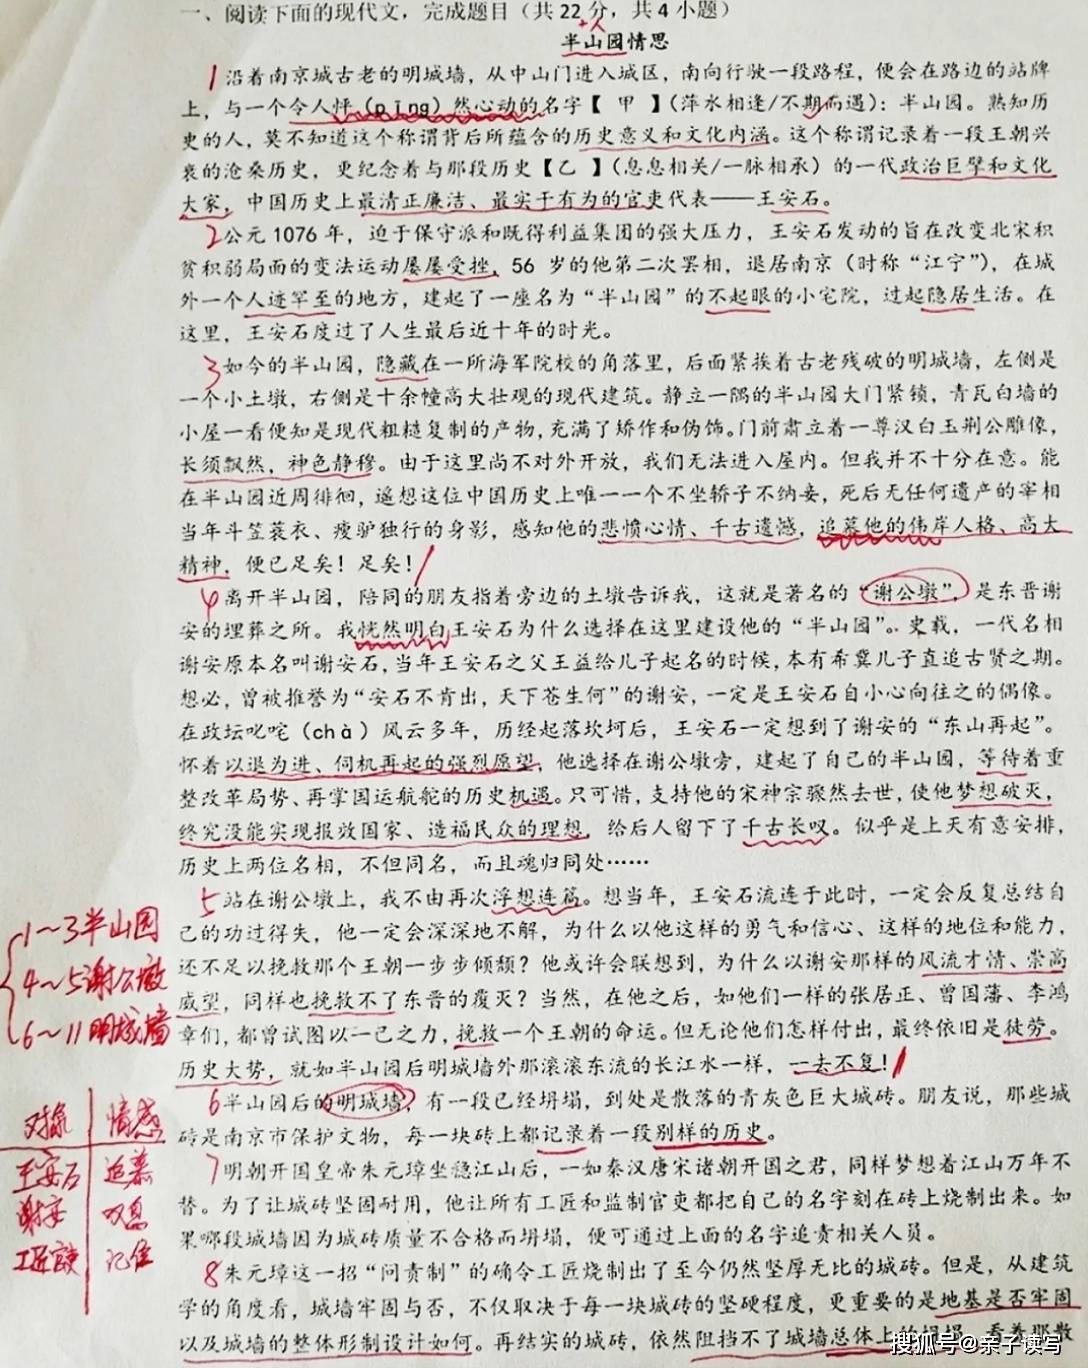 一、阅读下面的现代文，完成题目（共22分，共4小题）
+人
半山园情思
1沿着南京城古老的明城墙，从中山门进入城区，南向行驶一段路程，便会在路边的站牌
上，与一个令人怦（pīng）然心动的名字【 甲 】（萍水相逢/不期而遇）：半山园。熟知历
史的人，莫不知道这个称谓背后所蕴含的历史意义和文化内涵。这个称谓记录着一段王朝兴
衰的沧桑历史，更纪念着与那段历史【乙 】（息息相关/一脉相承）的一代政治巨擘和文化
大家，中国历史上最清正廉洁、最实干有为的官吏代表——王安石。
2公元1076年，迫于保守派和既得利益集团的强大压力，王安石发动的旨在改变北宋积
贫积弱局面的变法运动屡屡受挫，56 岁的他第二次罢相，退居南京（时称“江宁”），在城
外一个人迹罕至的地方，建起了一座名为“半山园”的不起眼的小宅院，过起隐居生活。在
这里，王安石度过了人生最后近十年的时光。
3如今的半山园，隐藏在一所海军院校的角落里，后面紧挨着古老残破的明城墙，左侧是
一个小土墩，右侧是十余幢高大壮观的现代建筑。静立一隅的半山园大门紧锁，青瓦白墙的
小屋一看便知是现代粗糙复制的产物，充满了矫作和伪饰。门前肃立着一尊汉白玉荆公雕像，
长须飘然，神色静穆。由于这里尚不对外开放，我们无法进入屋内。但我并不十分在意。能
在半山园近周徘徊，遥想这位中国历史上唯一一个不坐轿子不纳妾，死后无任何遗产的宰相
当年斗笠蓑衣、瘦驴独行的身影，感知他的悲愤心情、千古遗憾，追慕他的伟岸人格、高大
精神，便已足矣！足矣！
4离开半山园，陪同的朋友指着旁边的土墩告诉我，这就是著名的“谢公墩”，是东晋谢
安的埋葬之所。我恍然明白王安石为什么选择在这里建设他的“半山园”。史载，一代名相
谢安原本名叫谢安石，当年王安石之父王益给儿子起名的时候，本有希冀儿子直追古贤之期。
想必，曾被推誉为“安石不肯出，天下苍生何”的谢安，一定是王安石自小心向往之的偶像。
在政坛叱咤（chà）风云多年，历经起落坎坷后，王安石一定想到了谢安的“东山再起”。
怀着以退为进、伺机再起的强烈愿望，他选择在谢公墩旁，建起了自己的半山园，等待着重
整改革局势、再掌国运航舵的历史机遇。只可惜，支持他的宋神宗骤然去世，使他梦想破灭，
终究没能实现报效国家、造福民众的理想，给后人留下了千古长叹。似乎是上天有意安排，
历史上两位名相，不但同名，而且魂归同处……
5站在谢公墩上，我不由再次浮想连篇。想当年，王安石流连于此时，一定会反复总结自
己的功过得失，他一定会深深地不解，为什么以他这样的勇气和信心、这样的地位和能力，
还不足以挽救那个王朝一步步倾颓？他或许会联想到，为什么以谢安那样的风流才情、崇高
威望，同样也挽救不了东晋的覆灭？当然，在他之后，如他们一样的张居正、曾国藩、李鸿
章们，都曾试图以一己之力，挽救一个王朝的命运。但无论他们怎样付出，最终依旧是徒劳。
历史大势，就如半山园后明城墙外那滚滚东流的长江水一样，一去不复！
6半山园后的明城墙，有一段已经坍塌，到处是散落的青灰色巨大城砖。朋友说，那些城
砖是南京市保护文物，每一块砖上都记录着一段别样的历史。
7明朝开国皇帝朱元璋坐稳江山后，一如秦汉唐宋诸朝开国之君，同样梦想着江山万年不
替。为了让城砖坚固耐用，他让所有工匠和监制官吏都把自己的名字刻在砖上烧制出来。如
果哪段城墙因为城砖质量不合格而坍塌，便可通过上面的名字追责相关人员。
8朱元璋这一招“问责制”的确令工匠烧制出了至今仍然坚厚无比的城砖。但是，从建筑
学的角度看，城墙牢固与否，不仅取决于每一块城砖的坚硬程度，更重要的是地基是否牢固
以及城墙的整体形制设计如何。再结实的城砖，依然阻挡不了城墙总体上的坍塌。看着那散
1～3半山园
4～5谢公墩
6～11明城墙
对象 情感
王安石 追慕
谢安 叹息
工匠官吏 记住
搜狐号@亲子读写